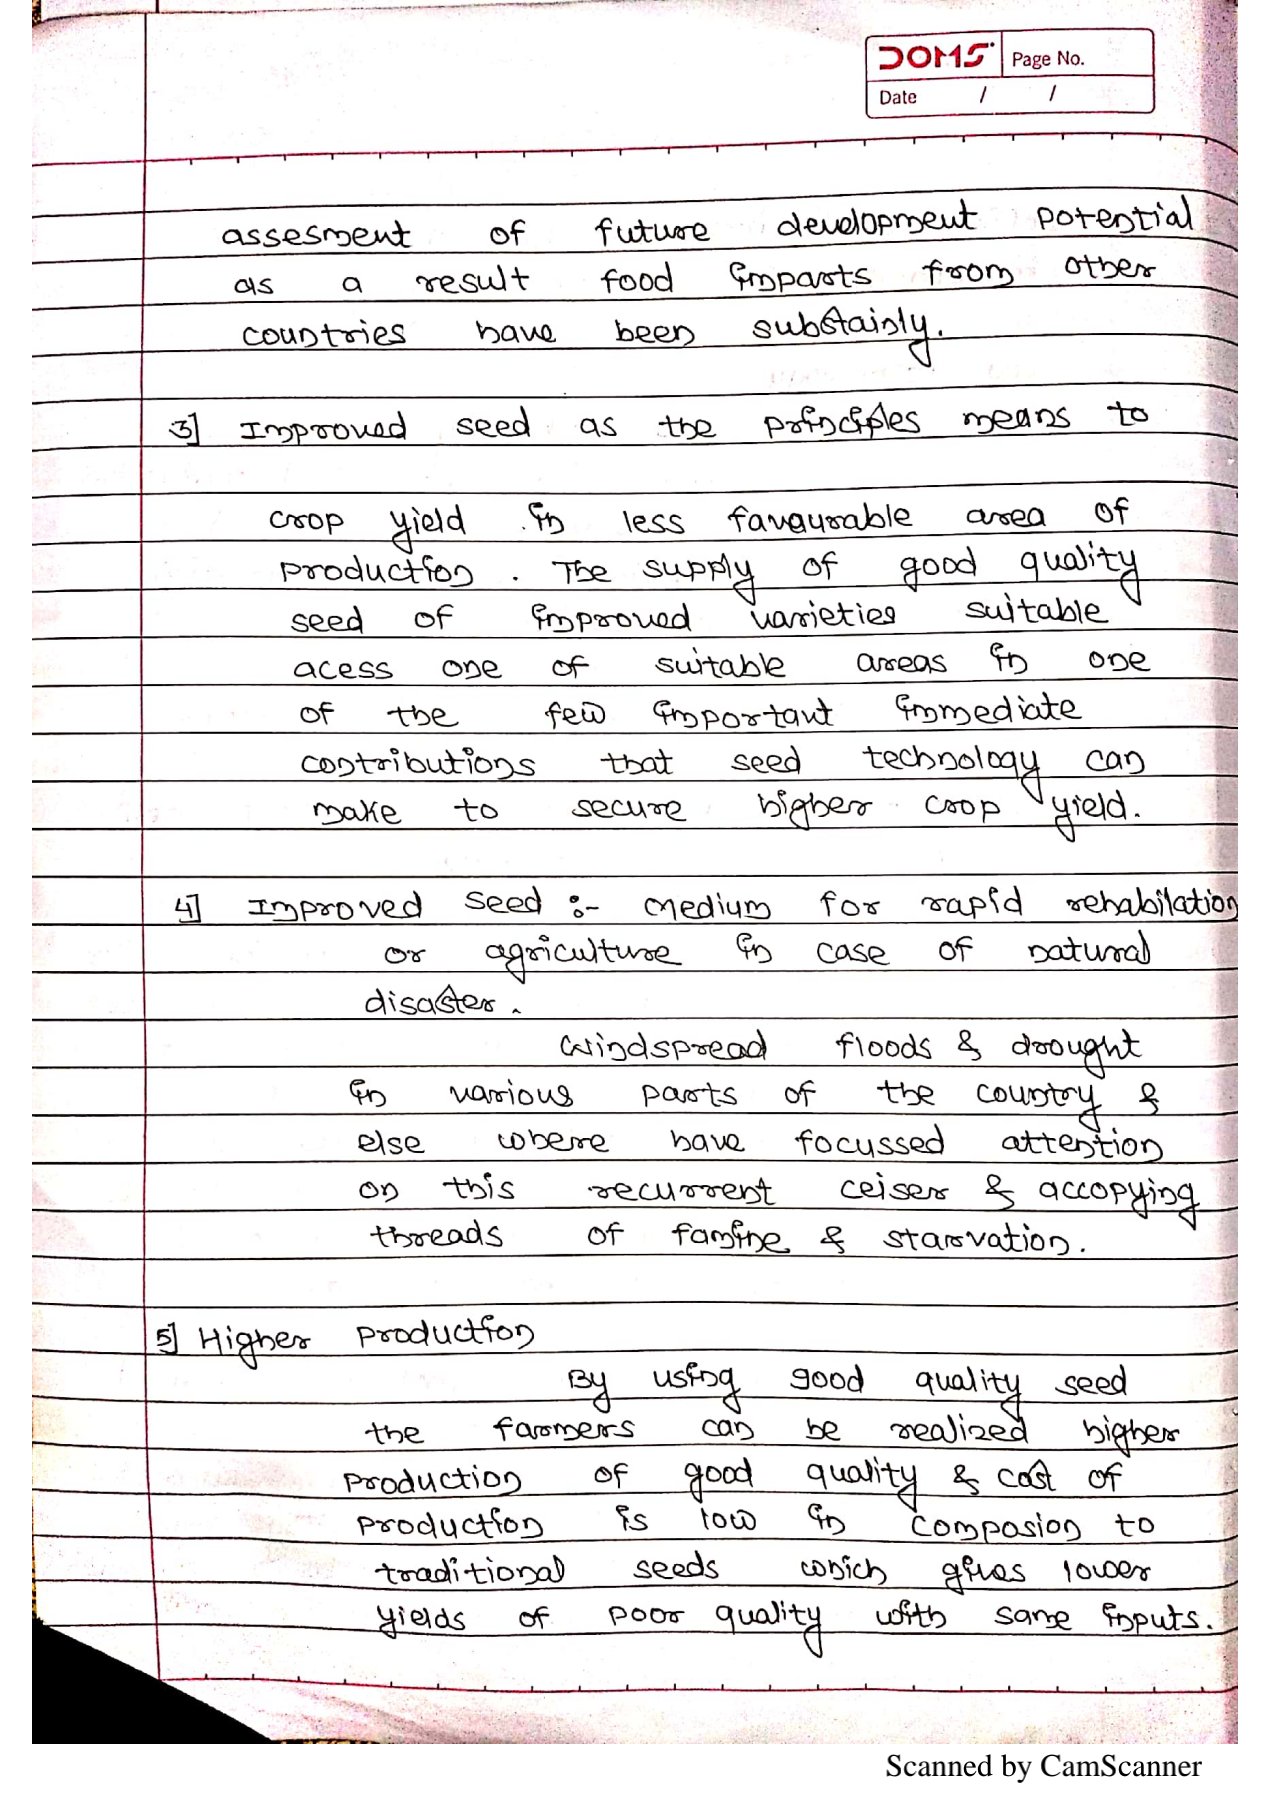 DOMS Page No.
Date / /
assesment of future development potential
as a result food imparts from other
countries have been substainly.
3] Improved seed as the principles means to
crop yield in less favaurable area of
production. The supply of good quality
seed of improved varieties suitable
acess one of suitable areas in one
of the few important immediate
contributions that seed technology can
make to secure higher crop yield.
4] Improved seed :- medium for rapid rehabilation
or agriculture in case of natural
disaster.
Windspread floods & drought
in various parts of the country &
else where have focussed attention
on this recurrent ceiser & accopying
threads of famine & starvation.
5] Higher production
By using good quality seed
the farmers can be realized higher
production of good quality & cost of
production is low in compasion to
traditional seeds which gives lower
yields of poor quality with same inputs.
Scanned by CamScanner